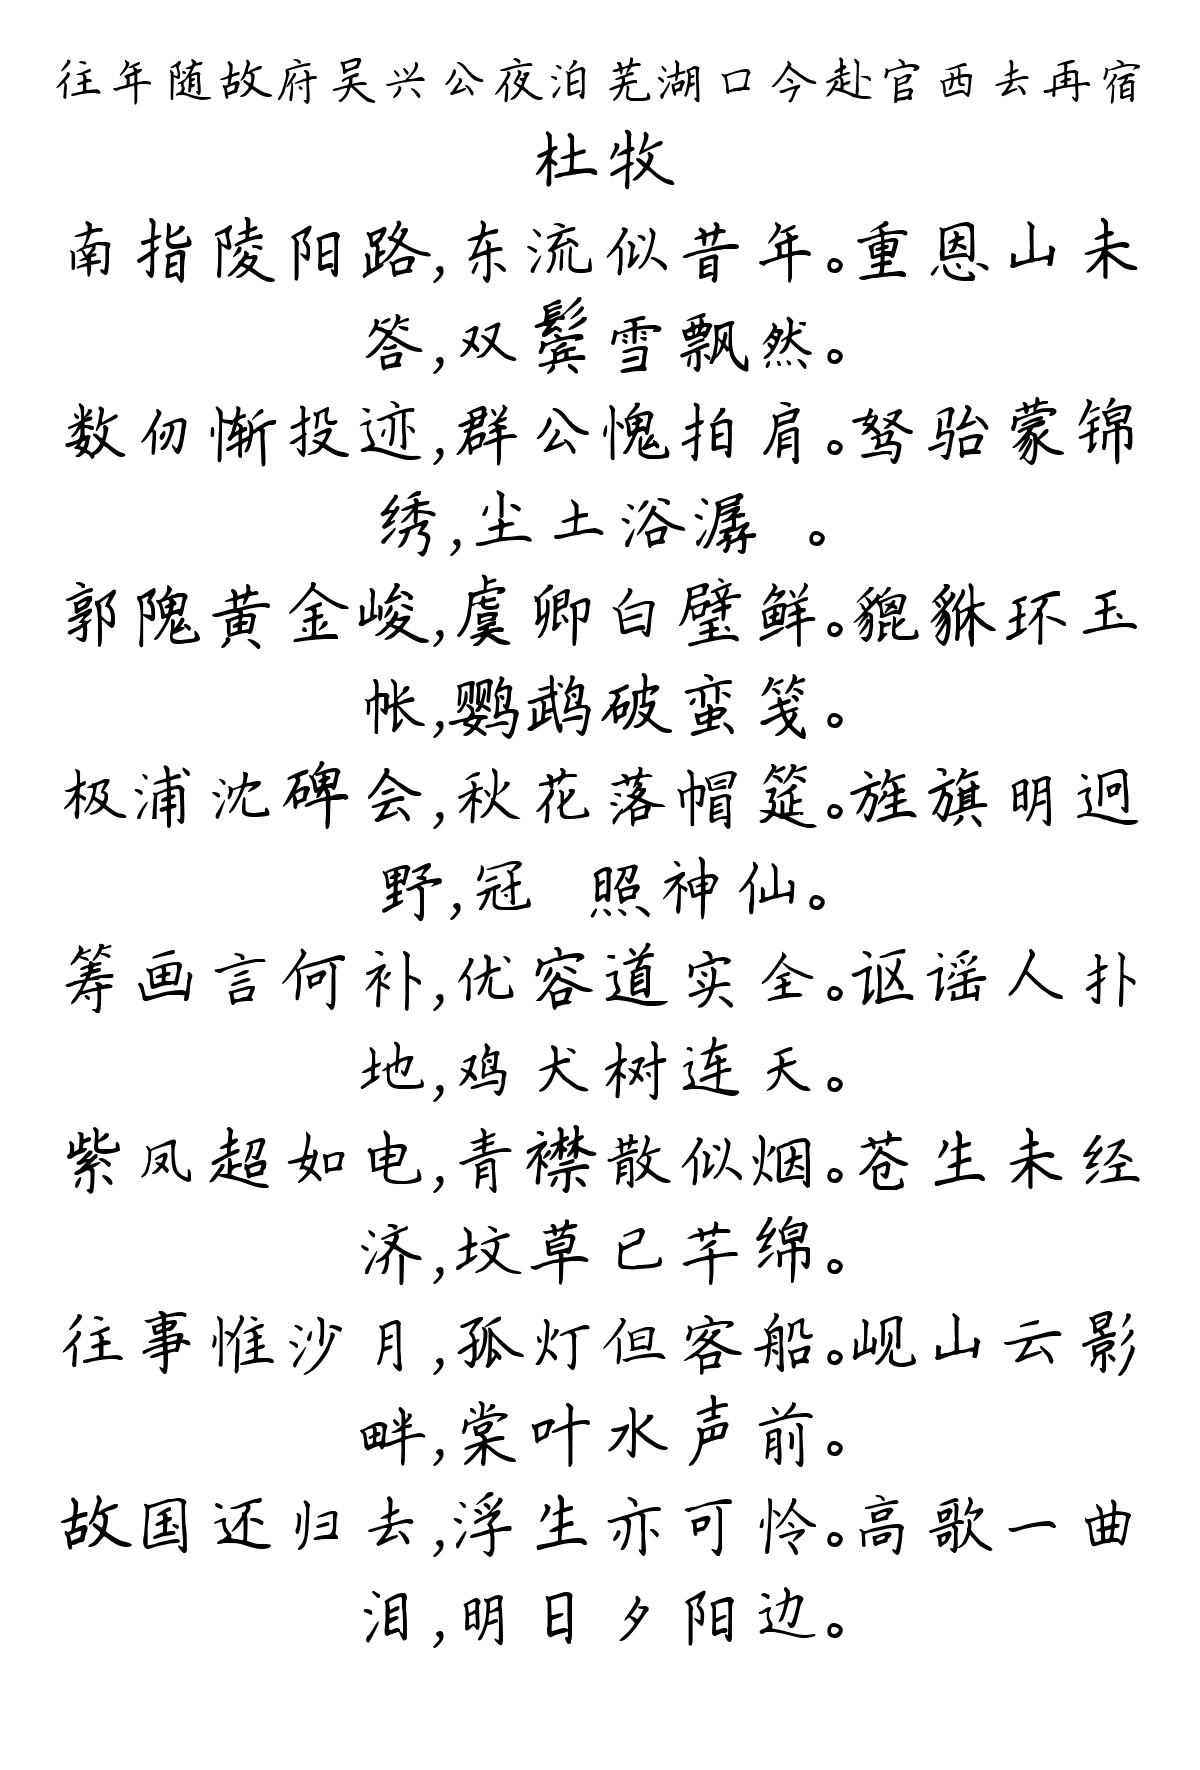 往年随故府吴兴公夜泊芜湖口今赴官西去再宿
杜牧
南指陵阳路,东流似昔年。重恩山未
答,双鬓雪飘然。
数仞惭投迹,群公愧拍肩。驽骀蒙锦
绣,尘土浴潺 。
郭隗黄金峻,虞卿白璧鲜。貔貅环玉
帐,鹦鹉破蛮笺。
极浦沈碑会,秋花落帽筵。旌旗明迥
野,冠 照神仙。
筹画言何补,优容道实全。讴谣人扑
地,鸡犬树连天。
紫凤超如电,青襟散似烟。苍生未经
济,坟草已芊绵。
往事惟沙月,孤灯但客船。岘山云影
畔,棠叶水声前。
故国还归去,浮生亦可怜。高歌一曲
泪,明日夕阳边。